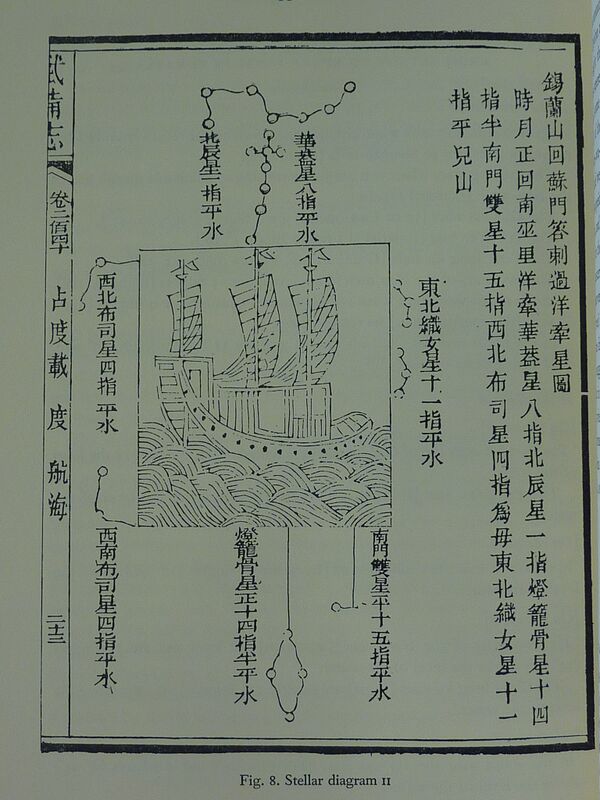 錫蘭山回蘇門答剌過洋牽星圖
時月正回南巫里洋牽華蓋星八指北辰星一指燈籠骨星十四
指半南門雙星十五指西北布司星四指爲母東北織女星十一
指平兒山
華蓋星八指平水
北辰星一指平水
東北織女星十一指平水
西北布司星四指平水
南門雙星平十五指平水
燈籠骨星正十四指半平水
西南布司星四指平水
武備志
卷二百四十
占度載
度
航海
二十三
Fig. 8. Stellar diagram II